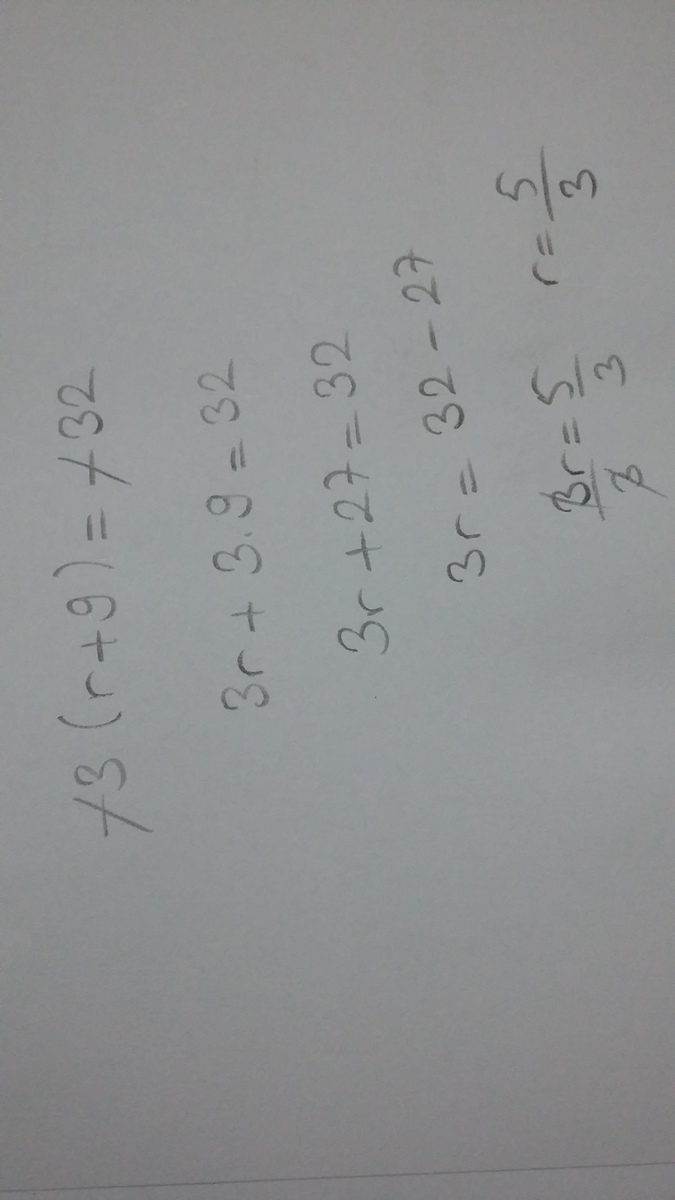 -3(r+9)=-32
3r+3.9=32
3r+27=32
3r=32-27
3r/3=5/3 r=5/3